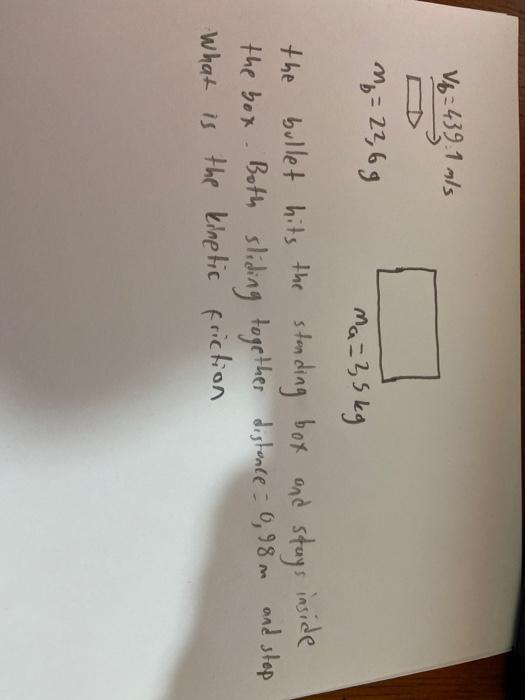 Vb = 439.1 m/s
mb = 23,6 g
ma = 3,5 kg
the bullet hits the standing box and stays inside
the box. Both sliding together distance = 0,98 m and stop
What is the kinetic friction